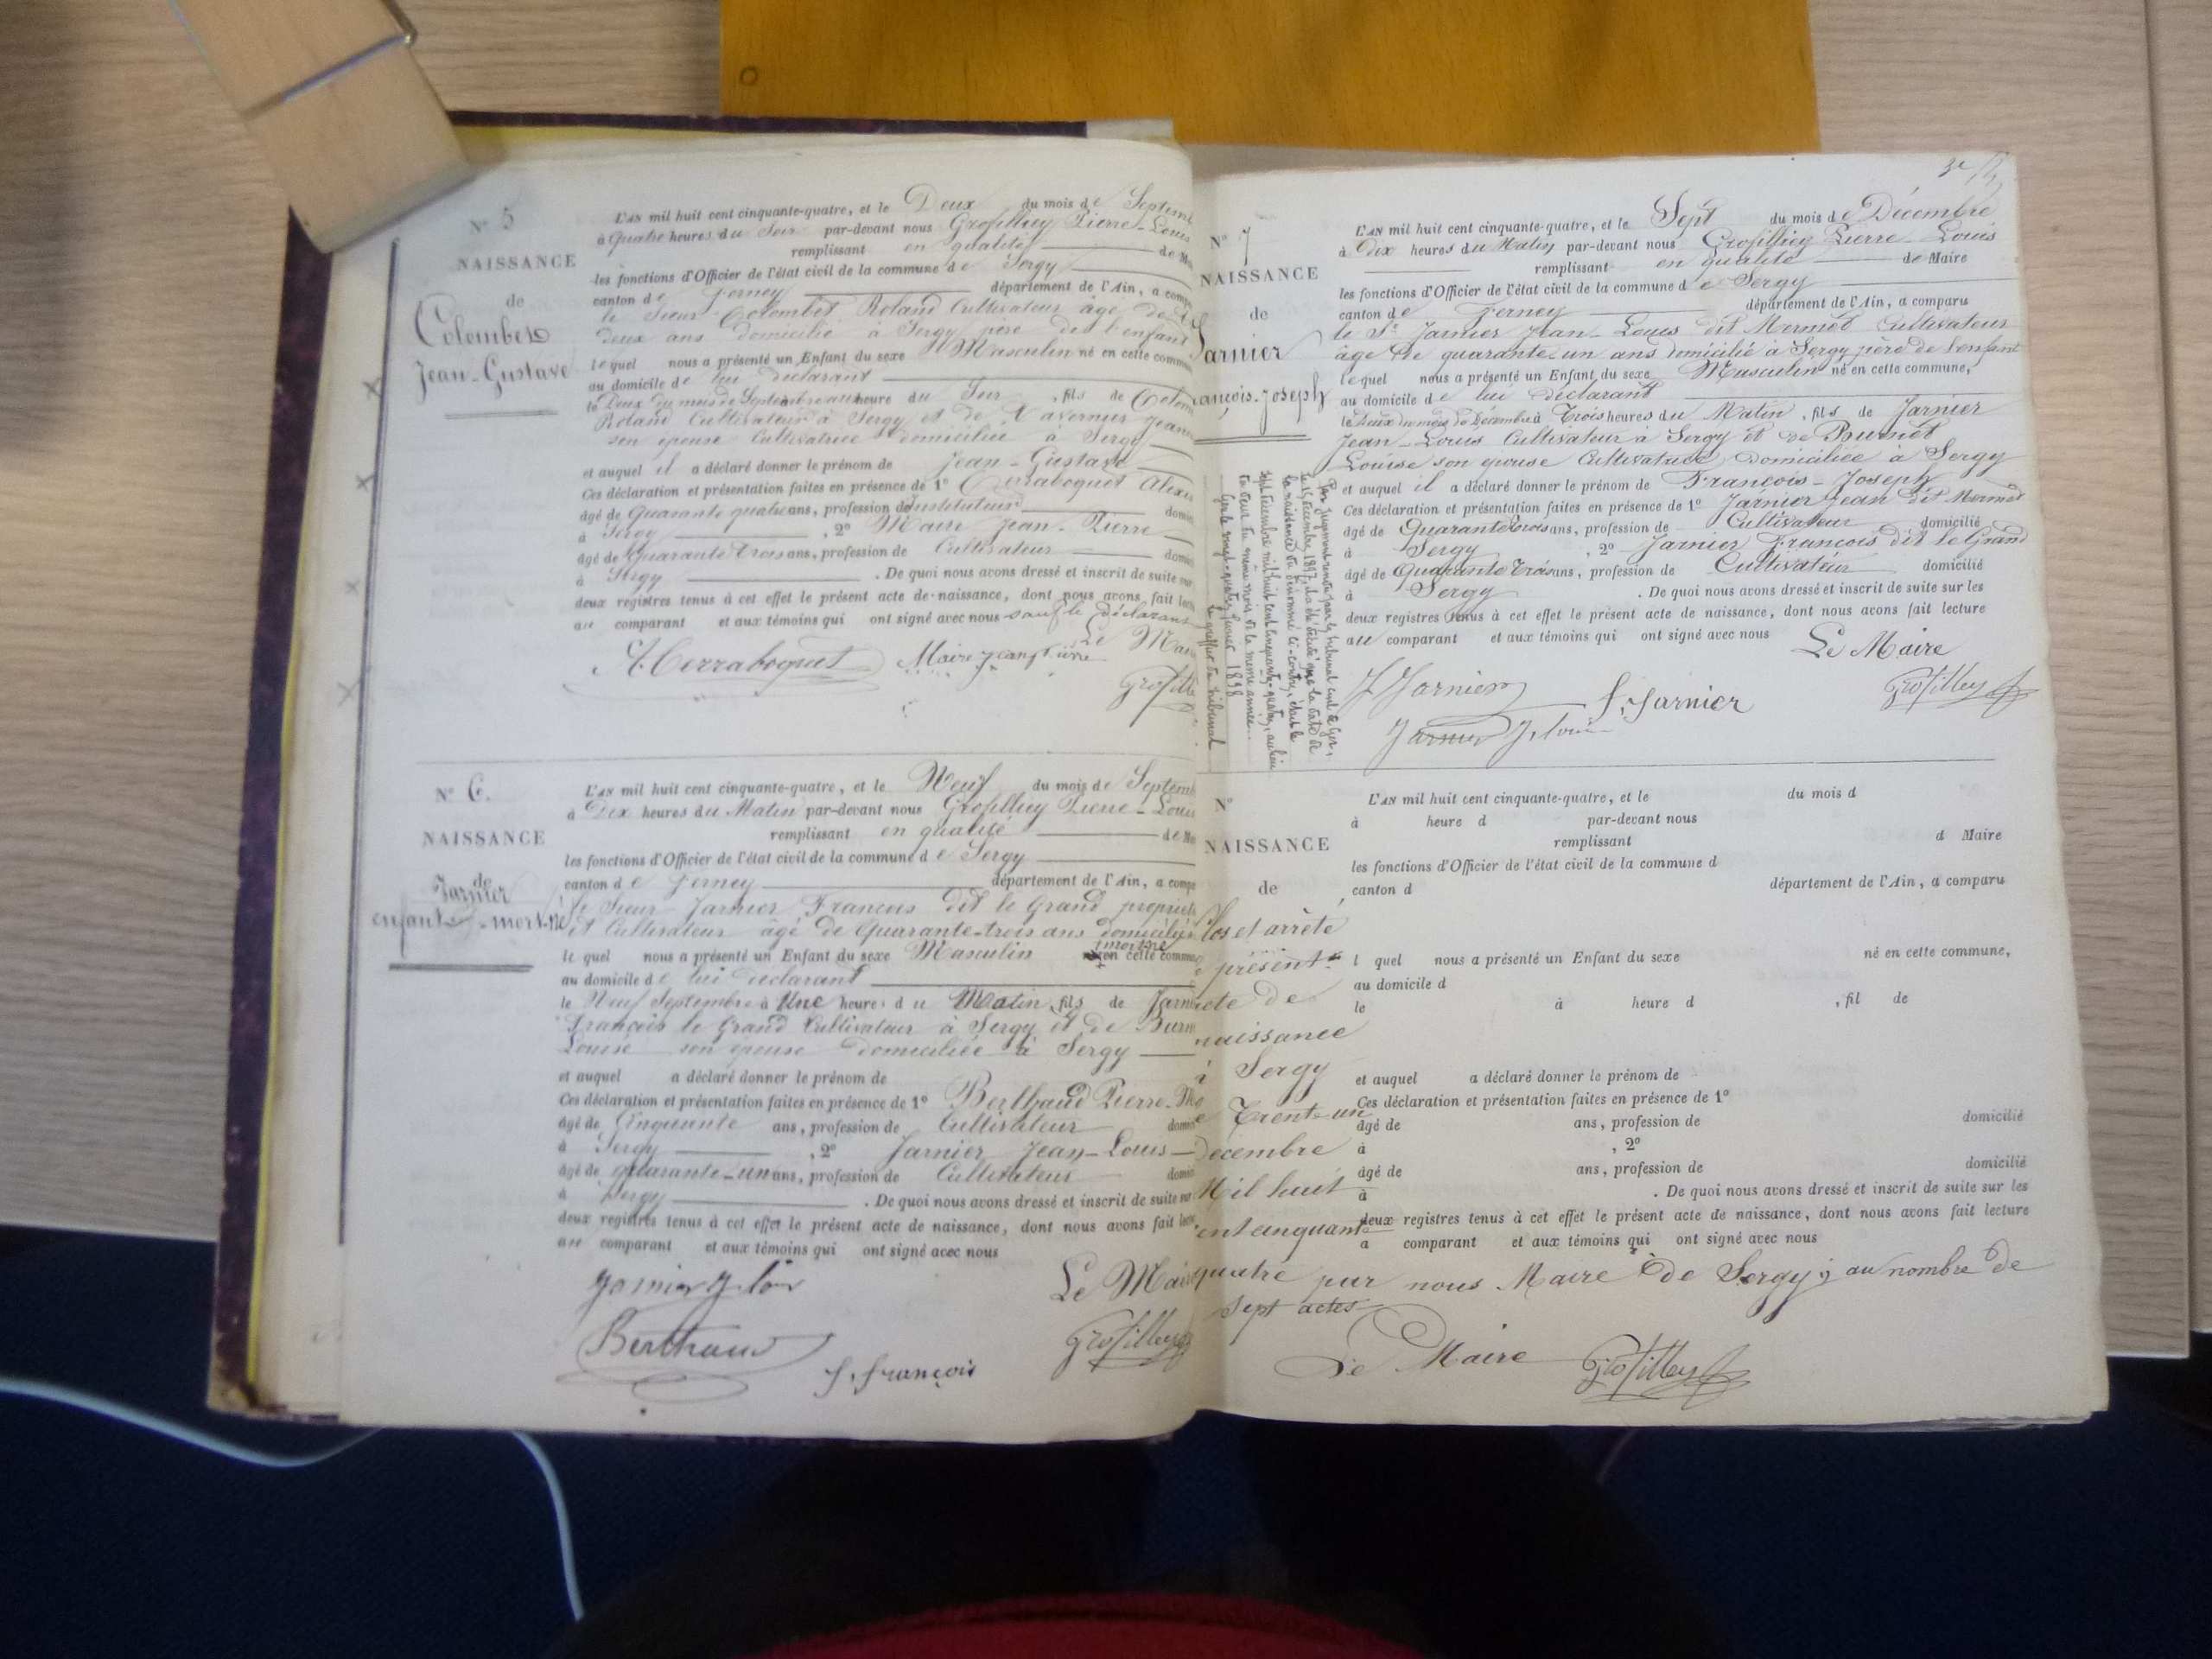 Nº 5
NAISSANCE
de
Colombet
Jean-Gustave
L'AN mil huit cent cinquante-quatre, et le Deux du mois de Septemb
à Quatre heures du Soir par-devant nous Grosfilley Pierre-Louis
remplissant en qualité de Ma
les fonctions d'Officier de l'état civil de la commune de Sergy
canton de Ferney département de l'Ain, a compa
le Sieur Colombet Roland Cultivateur âgé de
deux ans domicilié à Sergy père de l'enfant
lequel nous a présenté un Enfant du sexe Masculin né en cette commune
au domicile de lui déclarant
le Deux du mois de Septembre à heure du Soir, fils de Colom
Roland Cultivateur à Sergy et de Tavernier Jeann
son épouse Cultivatrice domiciliée à Sergy
et auquel il a déclaré donner le prénom de Jean-Gustave
Ces déclaration et présentation faites en présence de 1º Cerraboquet Alexis
âgé de Quarante quatre ans, profession d'Instituteur domic
à Sergy, 2º Maire Jean-Pierre
âgé de Quarante trois ans, profession de Cultivateur domic
à Sergy. De quoi nous avons dressé et inscrit de suite sur
deux registres tenus à cet effet le présent acte de naissance, dont nous avons fait lect
au comparant et aux témoins qui ont signé avec nous sauf le déclarant
Le Mai
A. Cerraboquet Maire Jean Pierre
Grosfille
Nº 6.
NAISSANCE
de
Jarnier
enfant mort-né
L'AN mil huit cent cinquante-quatre, et le Neuf du mois de Septemb
à Dix heures du Matin par-devant nous Grosfilley Pierre-Louis
remplissant en qualité de Ma
les fonctions d'Officier de l'état civil de la commune de Sergy
canton de Ferney département de l'Ain, a compa
le Sieur Jarnier Francois dit le Grand propriét
et Cultivateur âgé de Quarante-trois ans domicilié
lequel nous a présenté un Enfant du sexe Masculin mort né en cette commune
au domicile de lui déclarant
le Neuf Septembre à Une heure du Matin, fils de Jarni
François le Grand Cultivateur à Sergy et de Burn
Louise son épouse domiciliée à Sergy
et auquel a déclaré donner le prénom de
Ces déclaration et présentation faites en présence de 1º Berthaud Pierre-Ma
âgé de Cinquante ans, profession de Cultivateur domic
à Sergy, 2º Jarnier Jean-Louis
âgé de quarante-un ans, profession de Cultivateur domic
à Sergy. De quoi nous avons dressé et inscrit de suite sur
deux registres tenus à cet effet le présent acte de naissance, dont nous avons fait lectu
au comparant et aux témoins qui ont signé avec nous
Jarnier J. loui Le Maire
Berthaud Grosfilley
f. françois
3e
Nº 7
NAISSANCE
de
Jarnier
ançois-Joseph
L'AN mil huit cent cinquante-quatre, et le Sept du mois de Décembre
à Dix heures du Matin par-devant nous Grosfilley Pierre-Louis
remplissant en qualité de Maire
les fonctions d'Officier de l'état civil de la commune de Sergy
canton de Ferney département de l'Ain, a comparu
le Sr Jarnier Jean-Louis dit Mermet Cultivateur
âgé de quarante-un ans domicilié à Sergy père de l'enfant
lequel nous a présenté un Enfant du sexe Masculin né en cette commune,
au domicile de lui déclarant
le Deux du mois de Décembre à Trois heures du Matin, fils de Jarnier
Jean-Louis Cultivateur à Sergy et de Burnet
Louise son épouse Cultivatrice domiciliée à Sergy
et auquel il a déclaré donner le prénom de François-Joseph
Ces déclaration et présentation faites en présence de 1º Jarnier Jean dit Mermet
âgé de Quarante trois ans, profession de Cultivateur domicilié
à Sergy, 2º Jarnier Francois dit le Grand
âgé de Quarante Trois ans, profession de Cultivateur domicilié
à Sergy. De quoi nous avons dressé et inscrit de suite sur les
deux registres tenus à cet effet le présent acte de naissance, dont nous avons fait lecture
au comparant et aux témoins qui ont signé avec nous
Le Maire
J Jarnier f. Jarnier Grosfilley
Jarnier J. loui
Par jugement rendu par le tribunal civil de Gex,
le 15 décembre 1897, il a été décidé que la date de
la naissance du dénommé ci-contre, était le
sept décembre mil huit cent cinquante-quatre, au lieu
du deux du même mois de la même année.
Gex le vingt-quatre Janvier 1898
Le greffier du tribunal
Nº
NAISSANCE
de
L'AN mil huit cent cinquante-quatre, et le du mois d
à heure d par-devant nous
remplissant d Maire
les fonctions d'Officier de l'état civil de la commune d
canton d département de l'Ain, a comparu
l quel nous a présenté un Enfant du sexe né en cette commune,
au domicile d
le à heure d , fil de
et auquel a déclaré donner le prénom de
Ces déclaration et présentation faites en présence de 1º
âgé de ans, profession de domicilié
à , 2º
âgé de ans, profession de domicilié
à . De quoi nous avons dressé et inscrit de suite sur les
deux registres tenus à cet effet le présent acte de naissance, dont nous avons fait lecture
a comparant et aux témoins qui ont signé avec nous
Clos et arrêté
le présent
acte de
naissance
à Sergy
le Trent-un
Decembre
Mil huit
cent cinquante
quatre par nous Maire de Sergy, au nombre de
Sept actes
Le Maire Grosfilley